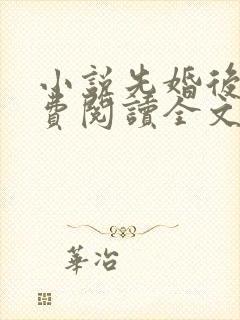 小說先婚後
費閱讀全文
華冶